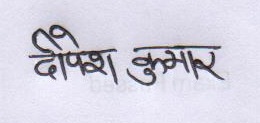 दीपेश कुमार